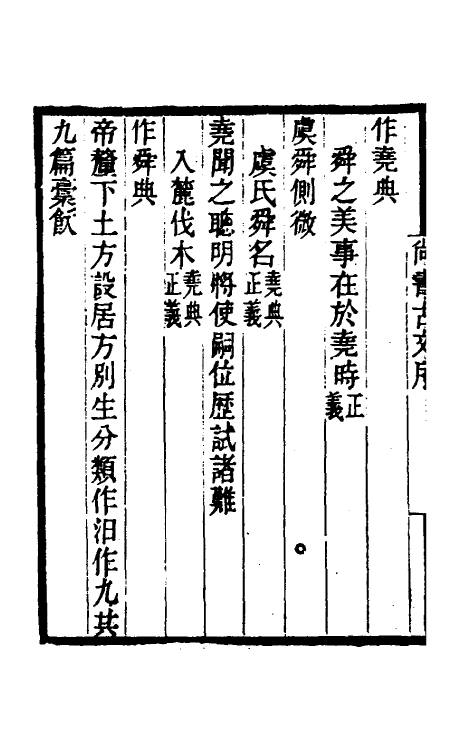 尚書古文序
作堯典
舜之美事在於堯時正義
虞舜側微
虞氏舜名堯典正義
堯聞之聰明將使嗣位歷試諸難
入麓伐木堯典正義
作舜典
帝釐下土方設居方別生分類作汨作九共
九篇稾飫